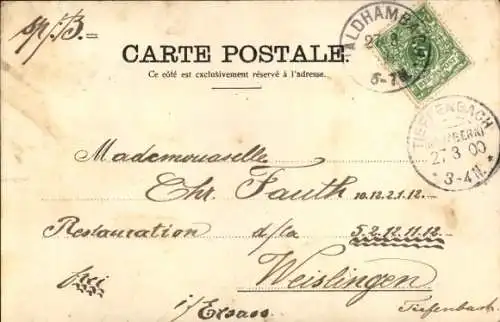 CARTE POSTALE.
Ce côté est exclusivement réservé à l'adresse.
ALDHAMBA
27 3
6-7N
TIEFFENBACH
27 3 00
3-4N.
Mademouaselle
Chr. Fauth 10.12.21.12.
Restauration d/la 5.2.12.11.12.
Weislingen
i/Elsass Tiefenbach